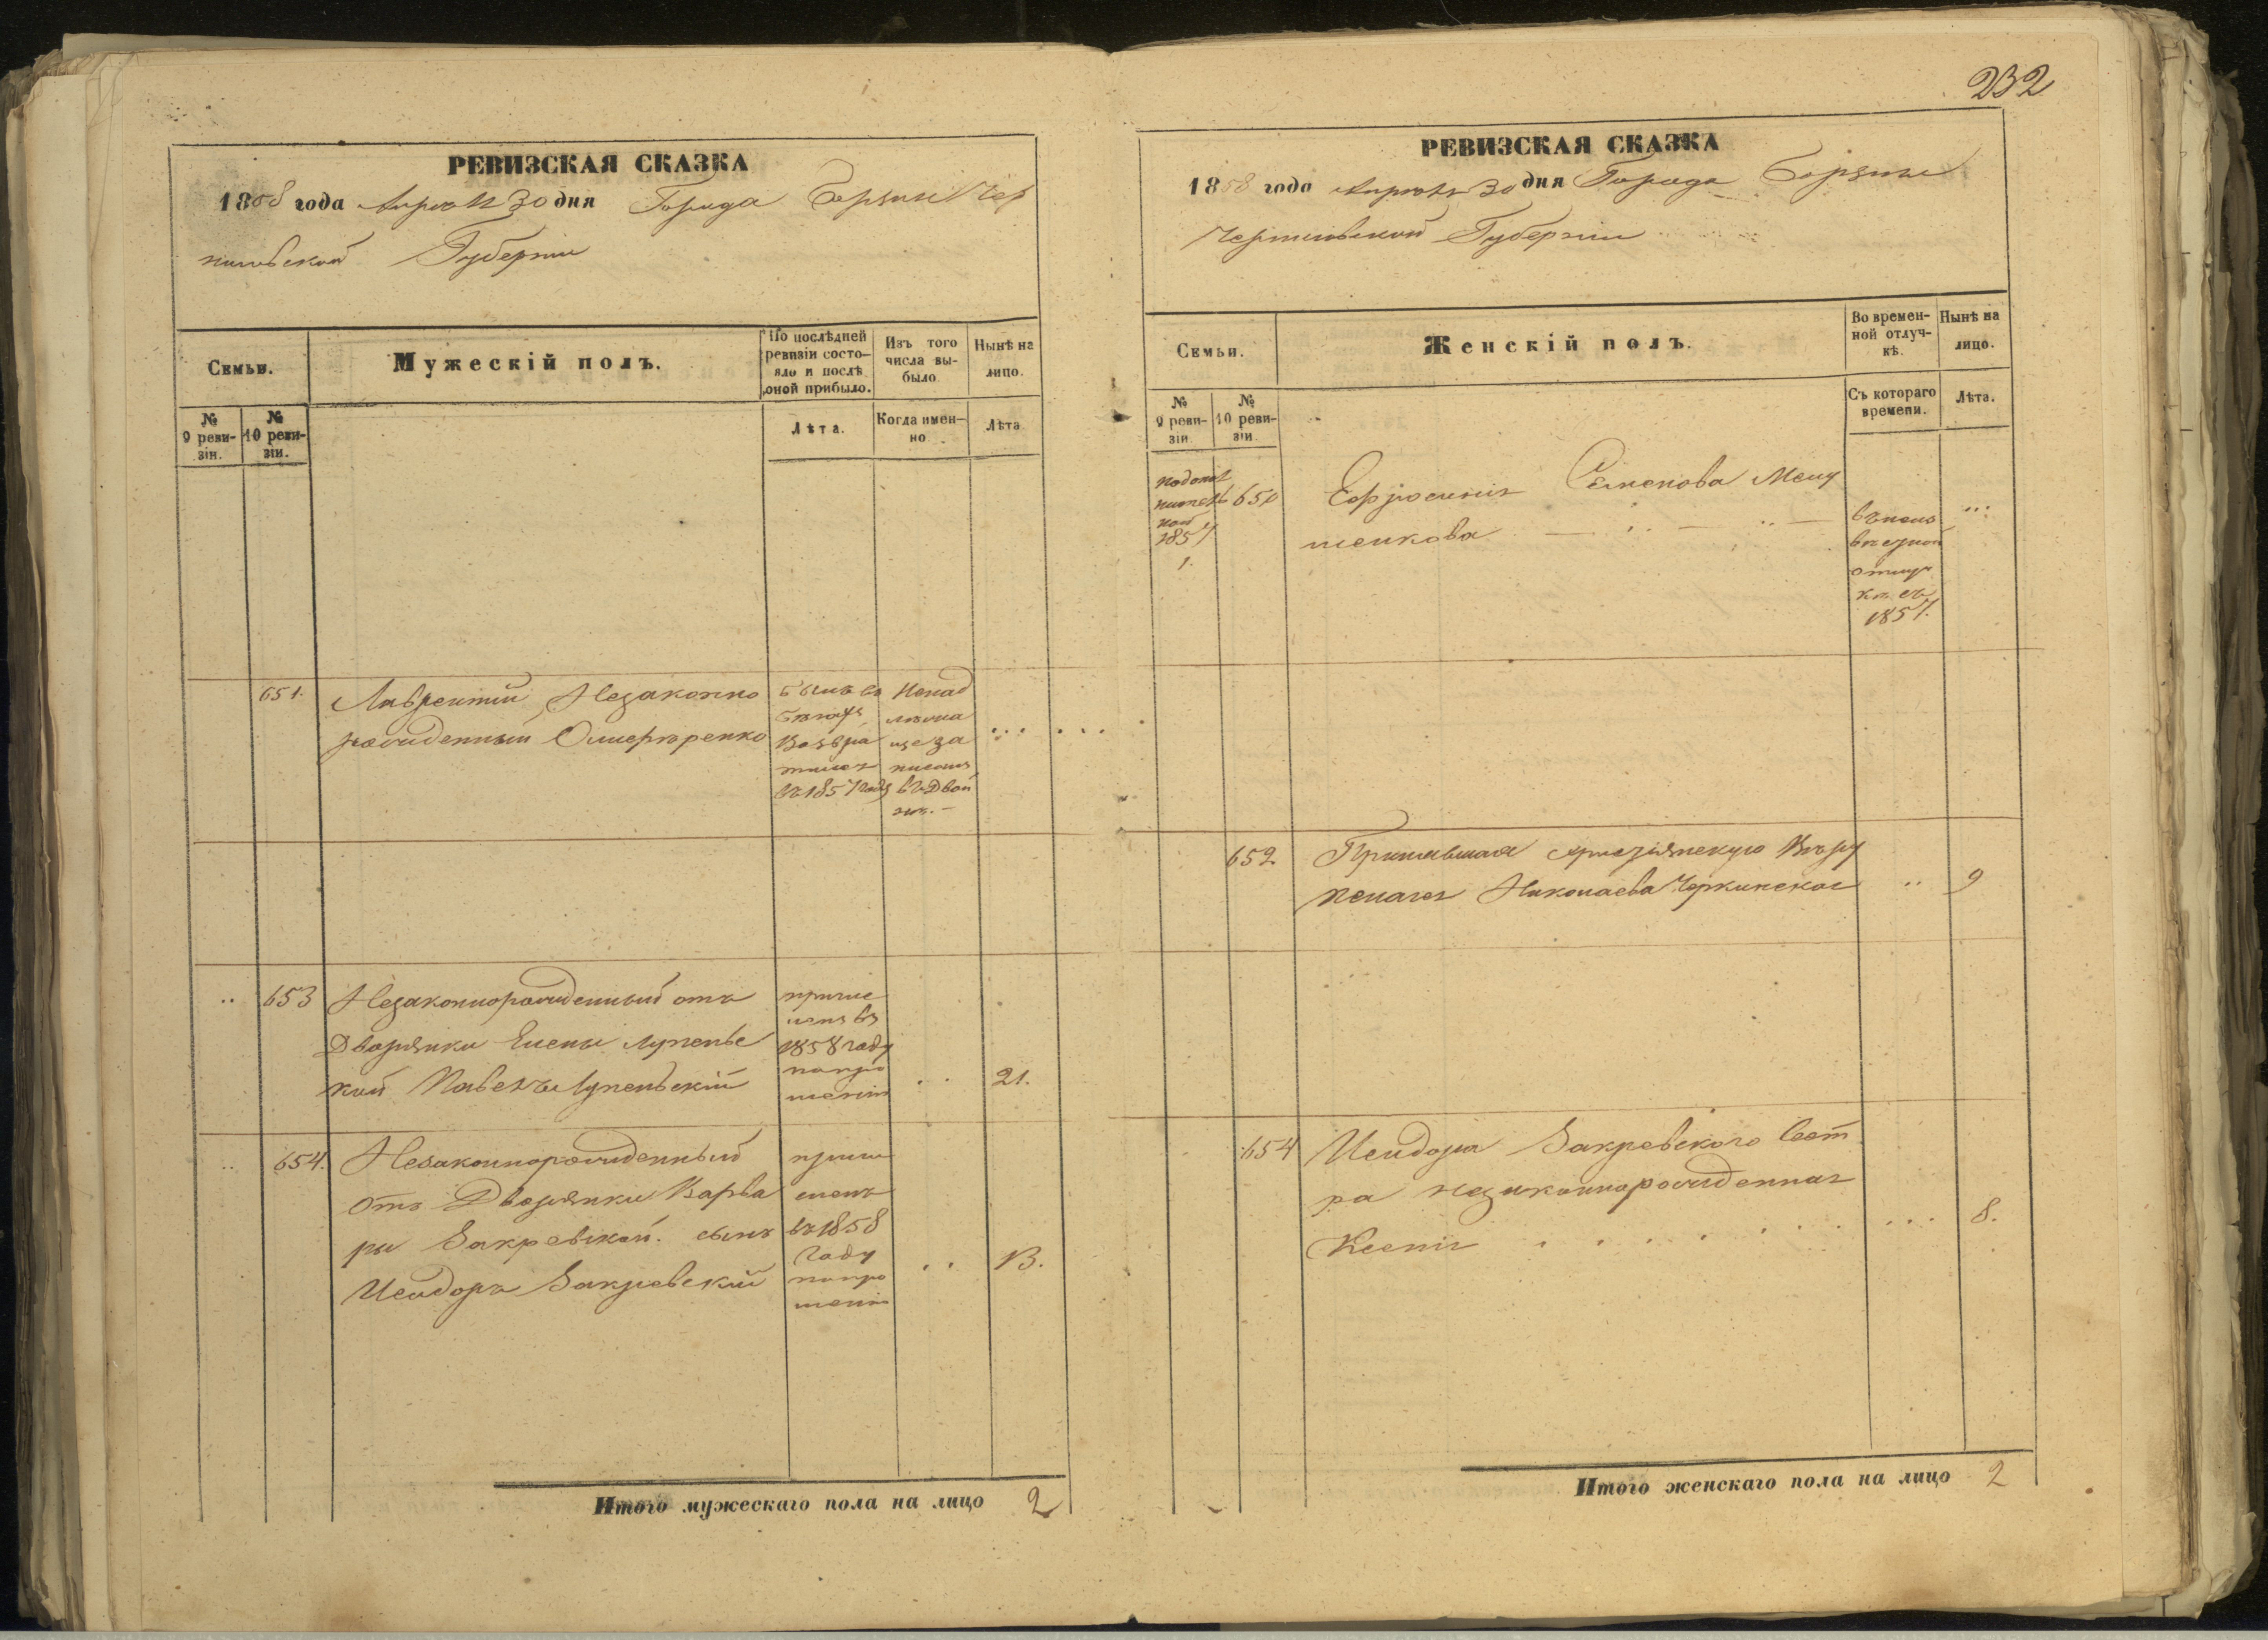 232
РЕВИЗСКАЯ СКАЗКА
1858 года Апрѣля 30 дня Города Борзны Чер
ниговской Губерніи
Семьи.
Мужескій полъ.
По послѣдней
ревизіи состо-
яло и послѣ
оной прибыло.
Изъ того
числа вы-
было
Нынѣ на
лицо.
№
9 реви-
зіи.
№
10 реви-
зіи.
Лѣта.
Когда имен-
но
Лѣта
651.
Лаврентий Незаконно
рожденный
былъ въ
бѣгахъ
Возвра
тился
въ 1857 году
ще за
писанъ
въ Двой
нѣ.
653
Незаконнорожденный отъ
Дворянки Елены
кой Павелъ
причис
ленъ въ
1858 году
попро
шенію
21.
654.
Незаконнорожденный
отъ Дворянки Варва
ры Закревской сынъ
Исидоръ Закревский
причи
сленъ
въ 1858
году
попро
шенію
13.
Итого мужескаго пола на лицо 2
РЕВИЗСКАЯ СКАЗКА
1858 года Апрѣля 30 дня Города Борзны
Черниговской Губерніи
Семьи.
Женскій полъ.
Во времен-
ной отлуч-
кѣ.
Нынѣ на
лицо.
№
9 реви-
зіи
№
10 реви-
зіи
Съ котораго
времени.
Лѣта.
подопол
нитель
ной
1857
1.
650
Ефросинія Семенова Мещ
ченкова
въ неиз
вѣстной
отлуч
кѣ съ
1857.
652.
Принявшая христіянскую Вѣру
Пелагея Николаева
9
654
Исидора Закревского Сест
ра незаконнорожденная
Ксенія
8.
Итого женскаго пола на лицо 2